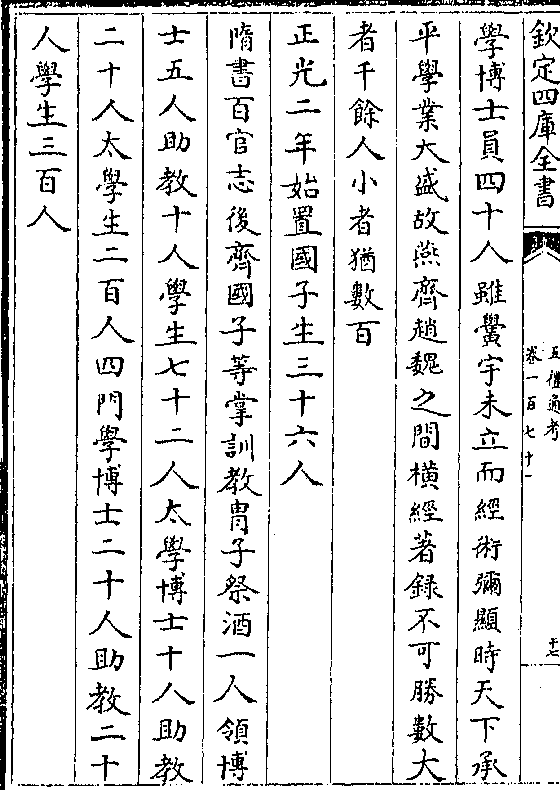 欽定四庫全書
五禮通考
卷一百七十一
十七
學博士員四十人雖黌宇未立而經術彌顯時天下承
平學業大盛故燕齊趙魏之間橫經著録不可勝數大
者千餘人小者猶數百
正光二年始置國子生三十六人
隋書百官志後齊國子等掌訓教胄子祭酒一人領博
士五人助教十人學生七十二人太學博士十人助教
二十人太學生二百人四門學博士二十人助教二十
人學生三百人